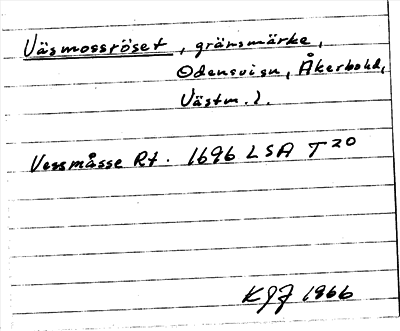 Väsmossröset, gränsmärke,
Odensvi sn, Åkerbo hd,
Västm. l.
Vessmåsse Rt. 1696 LSA T 20
KGJ 1966